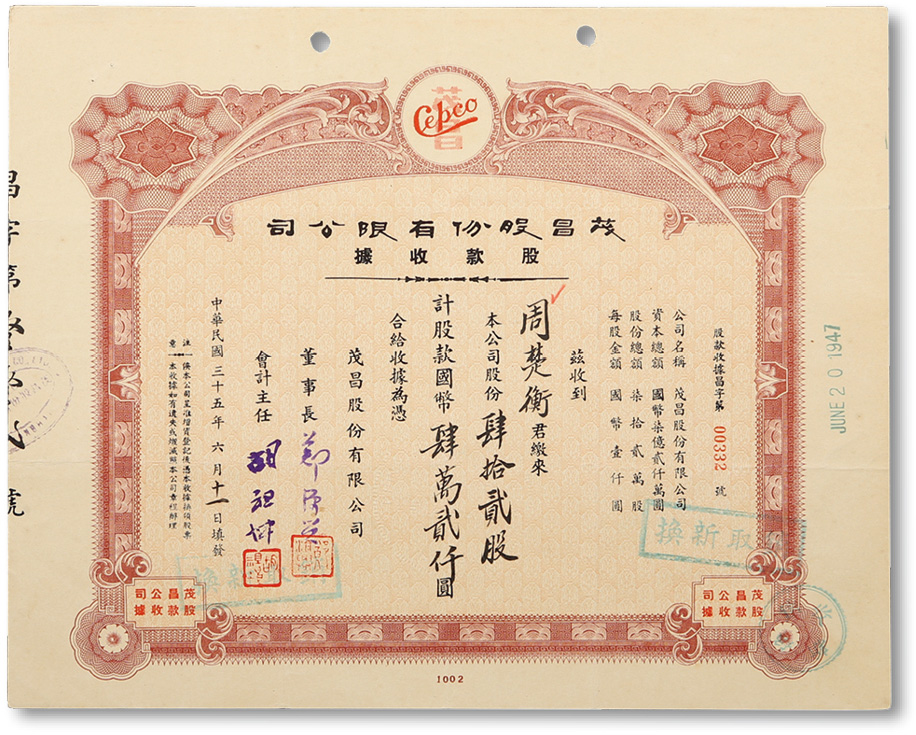 Cepco
茂昌
茂昌股份有限公司
股款收據
股款收據昌字第 00332 號
公司名稱 茂昌股份有限公司
資本總額 國幣柒億貳仟萬圓
股份總額 柒拾貳萬股
每股金額 國幣壹仟圓
茲收到
周楚衡君繳來
本公司股份肆拾貳股
計股款國幣肆萬貳仟圓
合給收據為憑
茂昌股份有限公司
董事長 鄭源興
會計主任 胡祖坤
中華民國三十五年六月十一日填發
注意
俟本公司呈准增資登記後憑本收據換領股票
本收據如有遺失或燬滅照本公司章程辦理
昌字第
號
JUNE 20 1947
取新換
茂昌公司
股款收據
茂昌公司
股款收據
1002